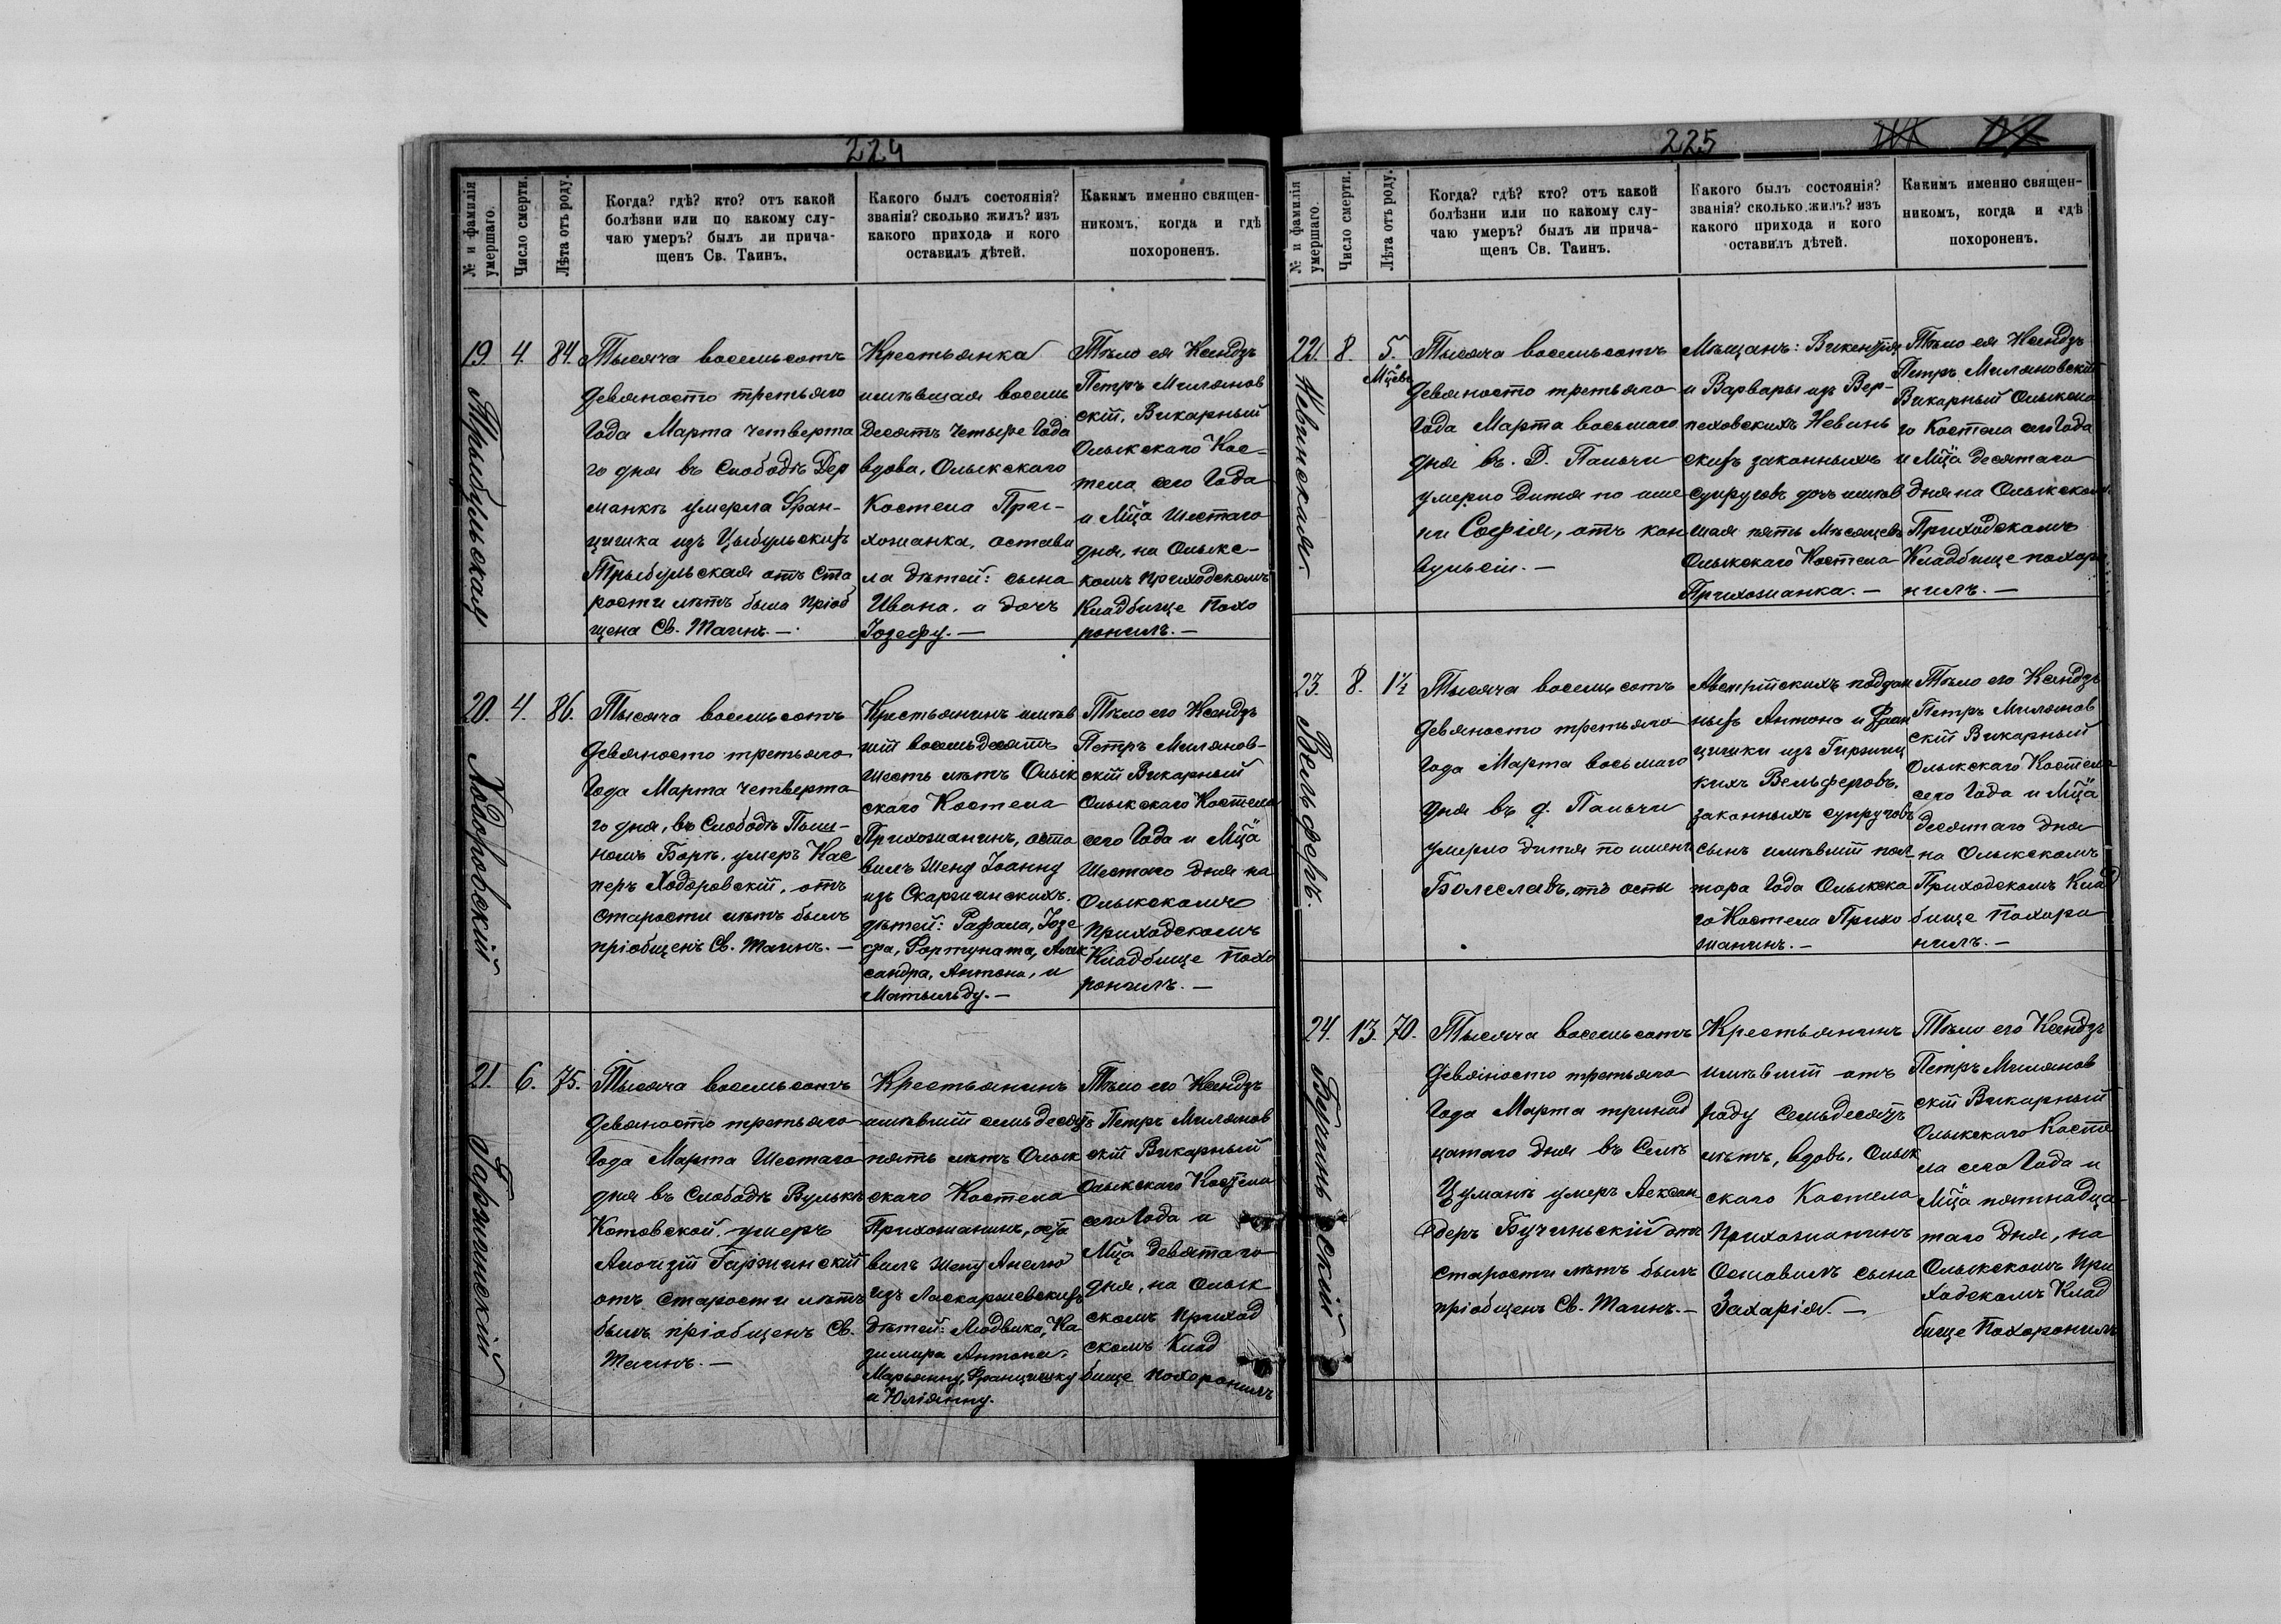 224
№ и фамилія умершаго.
Число смерти.
Лѣта отъ роду.
Когда? гдѣ? кто? отъ какой
болѣзни или по какому слу-
чаю умеръ? былъ ли прича-
щенъ Св. Таинъ.
Какого былъ состоянія?
званія? сколько жилъ? изъ
какого прихода и кого
оставилъ дѣтей.
Какимъ именно священ-
никомъ, когда и гдѣ
похороненъ.
19.
Трыбульская
4.
84.
Тысяча восемьсотъ
девяносто третьяго
Года Марта четверта
го дня въ Слободѣ Дер
манкѣ умерла Фран-
цишка изъ Цыбульскихъ
Трыбульская отъ ста
рости лѣтъ была пріоб
щена Св. Таинъ. —
Крестьянка
имѣвшая восемь
десятъ четыре Года
вдова, Олыкскаго
Костела При-
хожанка, остави
ла дѣтей: сына
Ивана, а дочь
Іозефу. —
Тѣло ея Ксендзъ
Петръ Миляновъ
скій, Викарный
Олыкскаго Кос-
тела сего Года
и Мца Шестаго
дня, на Олыкс-
комъ приходскомъ
Кладбище Похо
ронилъ. —
20.
Ходоровскій
4.
86.
Тысяча восемьсотъ
девяносто третьяго
Года Марта четверта
го дня, въ Слободѣ Пыш-
номъ Боркѣ, умеръ Кас
перъ Ходоровскій, отъ
старости лѣтъ былъ
пріобщенъ Св. Таинъ. —
Крестьянинъ имѣв
шій восемьдесятъ
шесть лѣтъ Олык
скаго Костела
Прихожанинъ, оста
вилъ Жену Іоанну
изъ Скаржинскихъ.
дѣтей: Рафала, Іозе
фа, Фортуната, Алек
сандра, Антона, и
Матыльду. —
Тѣло его Ксендзъ
Петръ Милянов-
скій Викарный
Олыкскаго Костела
сего Года и Мца
Шестаго дня на
Олыкскомъ
Приходскомъ
Кладбище Похо
ронилъ. —
21.
Гаржинскій
6.
75.
Тысяча восемьсотъ
девяносто третьяго
Года Марта Шестаго
дня въ Слободѣ Вулькѣ
Котовской, умеръ
Алоизій Гаржинскій
отъ старости лѣтъ
былъ пріобщенъ Св.
Таинъ. —
Крестьянинъ
имѣвшій семьдесятъ
пять лѣтъ Олык
скаго Костела
Прихожанинъ, оста
вилъ жену Анелю
изъ Ласкаржевскихъ
дѣтей: Людвика, Ка
зимира Антона,
Марьянну, Францишку
и Юліянну.
Тѣло его Ксендзъ
Петръ Милянов
скій Викарный
Олыкскаго Костела
сего Года и
Мца девятаго
дня, на Олык
скомъ приход
скомъ Клад
бище похоронилъ
225
№ и фамилія умершаго.
Число смерти.
Лѣта отъ роду.
Когда? гдѣ? кто? отъ какой
болѣзни или по какому слу-
чаю умеръ? былъ ли прича-
щенъ Св. Таинъ.
Какого былъ состоянія?
званія? сколько жилъ? изъ
какого прихода и кого
оставилъ дѣтей.
Какимъ именно священ-
никомъ, когда и гдѣ
похороненъ.
22.
Невинская.
8.
5.
Мцевъ
Тысяча восемьсотъ
девяносто третьяго
Года Марта восьмаго
дня въ. Д. Пальчи
умерло Дитя по име
ни Софія, отъ кон
вульсіи. —
Мѣщанъ: Викентія
и Варвары изъ Вер-
пеховскихъ Невинь
скихъ законныхъ
супруговъ дочь имѣв
шая пять Мѣсяцевъ
Олыкскаго Костела
Прихожанка. —
Тѣло ея Ксендзъ
Петръ Миляновскій
Викарный Олыкска
го Костела сего Года
и Мца десятаго
дня на Олыкскомъ
Приходскомъ
Кладбище похоро
нилъ. —
23.
Вельферъ.
8.
1½
Тысяча восемьсотъ
девяносто третьяго
года Марта восьмаго
дня въ д. Пальчи
умерло дитя по имени
Болеславъ, отъ оспы
Австрійскихъ поддан
ныхъ Антона и Фран
цишки изъ Гиржиц
кихъ Вельферовъ.
законныхъ супруговъ
сынъ имѣвшій пол-
тора Года Олыкска
го Костела Прихо
жанинъ. —
Тѣло его Ксендзъ
Петръ Миляновъ
скій Викарный
Олыкскаго Костела
сего Года и Мца
десятаго дня
на Олыкскомъ
Приходскомъ Клад
бище Похоро
нилъ. —
24.
Бучиньскій
13.
70.
Тысяча восемьсотъ
девяносто третьяго
Года Марта тринад
цатаго дня въ Селѣ
Цуманѣ умеръ Алексан
деръ Бучиньскій отъ
старости лѣтъ былъ
пріобщенъ Св. Таинъ. —
Крестьянинъ
имѣвшій отъ
роду семьдесятъ
лѣтъ, вдовъ, Олык
скаго Костела
прихожанинъ
Оставилъ сына
Захарія. —
Тѣло его Ксендзъ
Петръ Милянов
скій Викарный
Олыкскаго Косте
ла сего Года и
Мца пятнадца-
таго дня, на
Олыкскомъ При
ходскомъ Клад
бище Похоронилъ